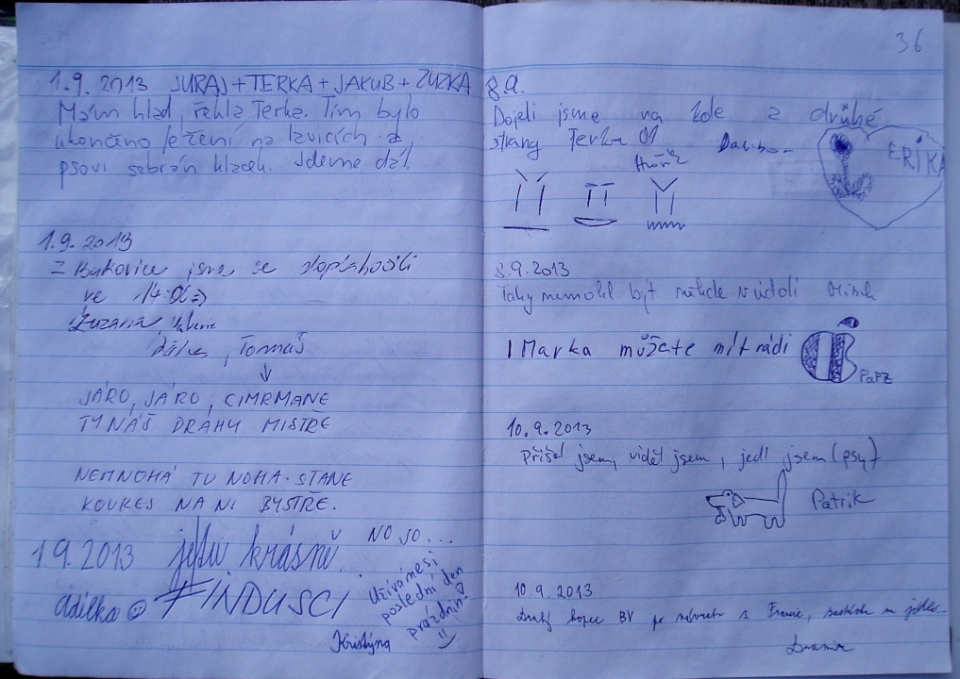 1.9. 2013 JURAJ + TERKA + JAKUB + ZUZKA
Mám hlad, řekla Terka. Tím bylo
ukončeno ležení na lavicích a
psovi sebrán klacek. Jdeme dál.
1.9. 2013
Z Bukovice jsme se
ve 14:
Zuzana, Valerie
, Tomáš
JÁRO, JÁRO, CIMRMANE
TY NÁŠ DRAHÝ MISTŘE
NEMNOHÁ TU NOHA STANE
KOUKEJ NA NI BYSTŘE.
NO JO...
1.9. 2013 je tu krásně.
Adélka FINDUSCI
Užíváme si
poslední den
prázdnin!
Kristýna
36
8.9.
Dojeli jsme na kole z druhé
strany Terka
ERIKA
8.9.2013
Taky nemohl být někde v údolí
I Marka můžete mít rádi
PaPZ
10.9.2013
Přišel jsem, viděl jsem, jedl jsem (psy)
Patrik
10.9.2013
Druhý kopec BV po návratu z Francie,